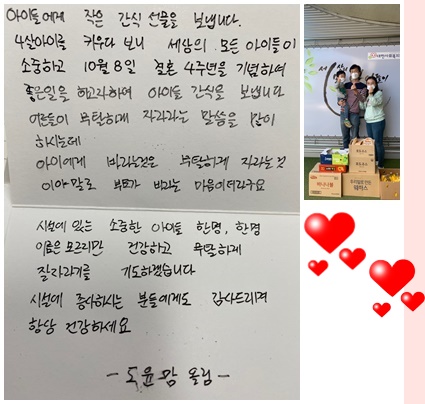 아이들에게 작은 간식 선물을 보냅니다.
4살아이를 키우다 보니 세상의 모든 아이들이
소중하고 10월 8일 결혼 4주년을 기념하여
좋은일을 하고자하여 아이들 간식을 보냅니다
어른들이 무탈하게 자라라는 말씀을 많이
하시는데
아이에게 바라는것은 무탈하게 자라는것
이야말로 부모가 바라는 마음이더라구요
시설에 있는 소중한 아이들 한명, 한명
이름은 모르지만 건강하고 무탈하게
잘자라기를 기도하겠습니다
시설에 종사하시는 분들에게도 감사드리며
항상 건강하세요
- 도윤맘 올림 -
바나나볼